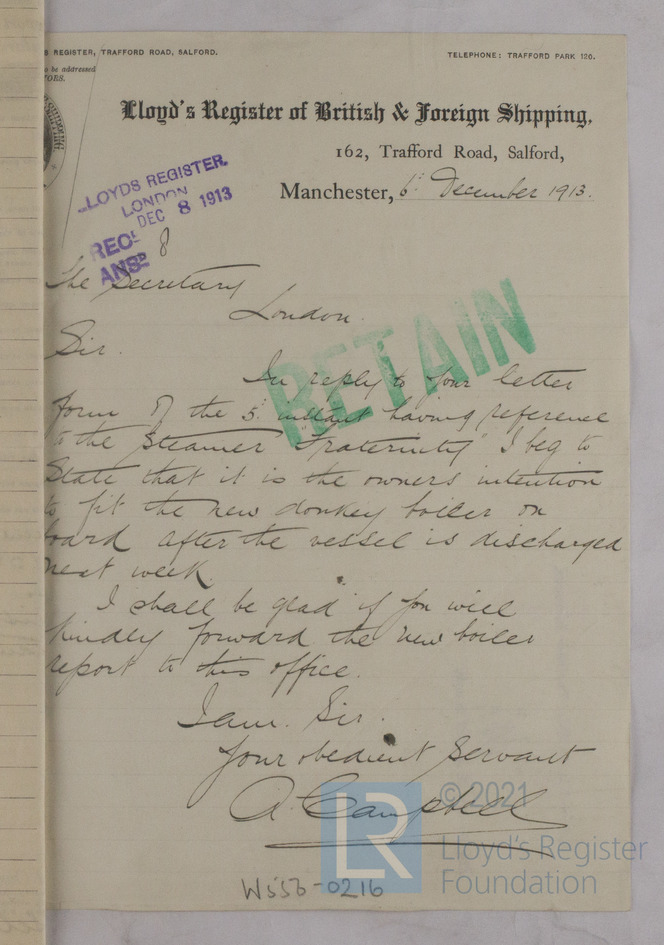 S REGISTER, TRAFFORD ROAD, SALFORD.
TELEPHONE: TRAFFORD PARK 120.
o be addressed
TORS.
Lloyd's Register of British & Foreign Shipping,
162, Trafford Road, Salford,
Manchester, 6th December 1913.
LLOYDS REGISTER.
LONDON
DEC 8 1913
REC'D
ANSD 8
The Secretary
London
Sir.
RETAIN
In reply to your letter
form of the 5. instant having reference
to the Steamer "Fraternity" I beg to
State that it is the owners intention
to fit the new donkey boiler on
board after the vessel is discharged
next week.
I shall be glad if you will
kindly forward the new boiler
report to this office.
I am. Sir.
Your obedient Servant
A. Campbell
© 2021
LR
Lloyd's Register
Foundation
W556-0216